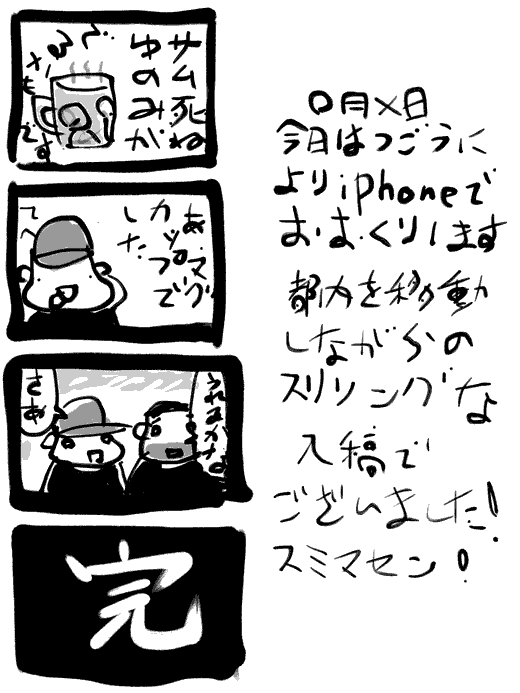 サム死ね
ゆのみが
あ、マグ
カップで
した
てへ
うれるかなぁ
さぁ
完
〇月×日
今日はつごうに
よりiphoneで
おおくりします
都内を移動
しながらの
スリリングな
入稿で
ございました!
スミマセン!